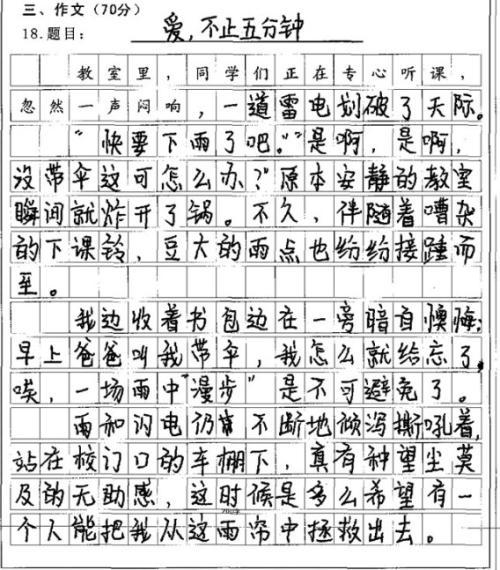 三、作文（70分）
18.题目：爱，不止五分钟
教室里，同学们正在专心听课，
忽然一声闷响，一道雷电划破了天际。
“快要下雨了吧。”是啊，是啊，
没带伞这可怎么办？”原本安静的教室
瞬间就炸开了锅。不久，伴随着嘈杂
的下课铃，豆大的雨点也纷纷接踵而
至。
我边收着书包边在一旁暗自懊悔：
早上爸爸叫我带伞，我怎么就给忘了，
唉，一场雨中“漫步”是不可避免了。
雨和闪电仍常不断地倾泻撕吼着，
站在校门口的车棚下，真有种望尘莫
及的无助感，这时候是多么希望有一
个人能把我从这雨帘中拯救出去。